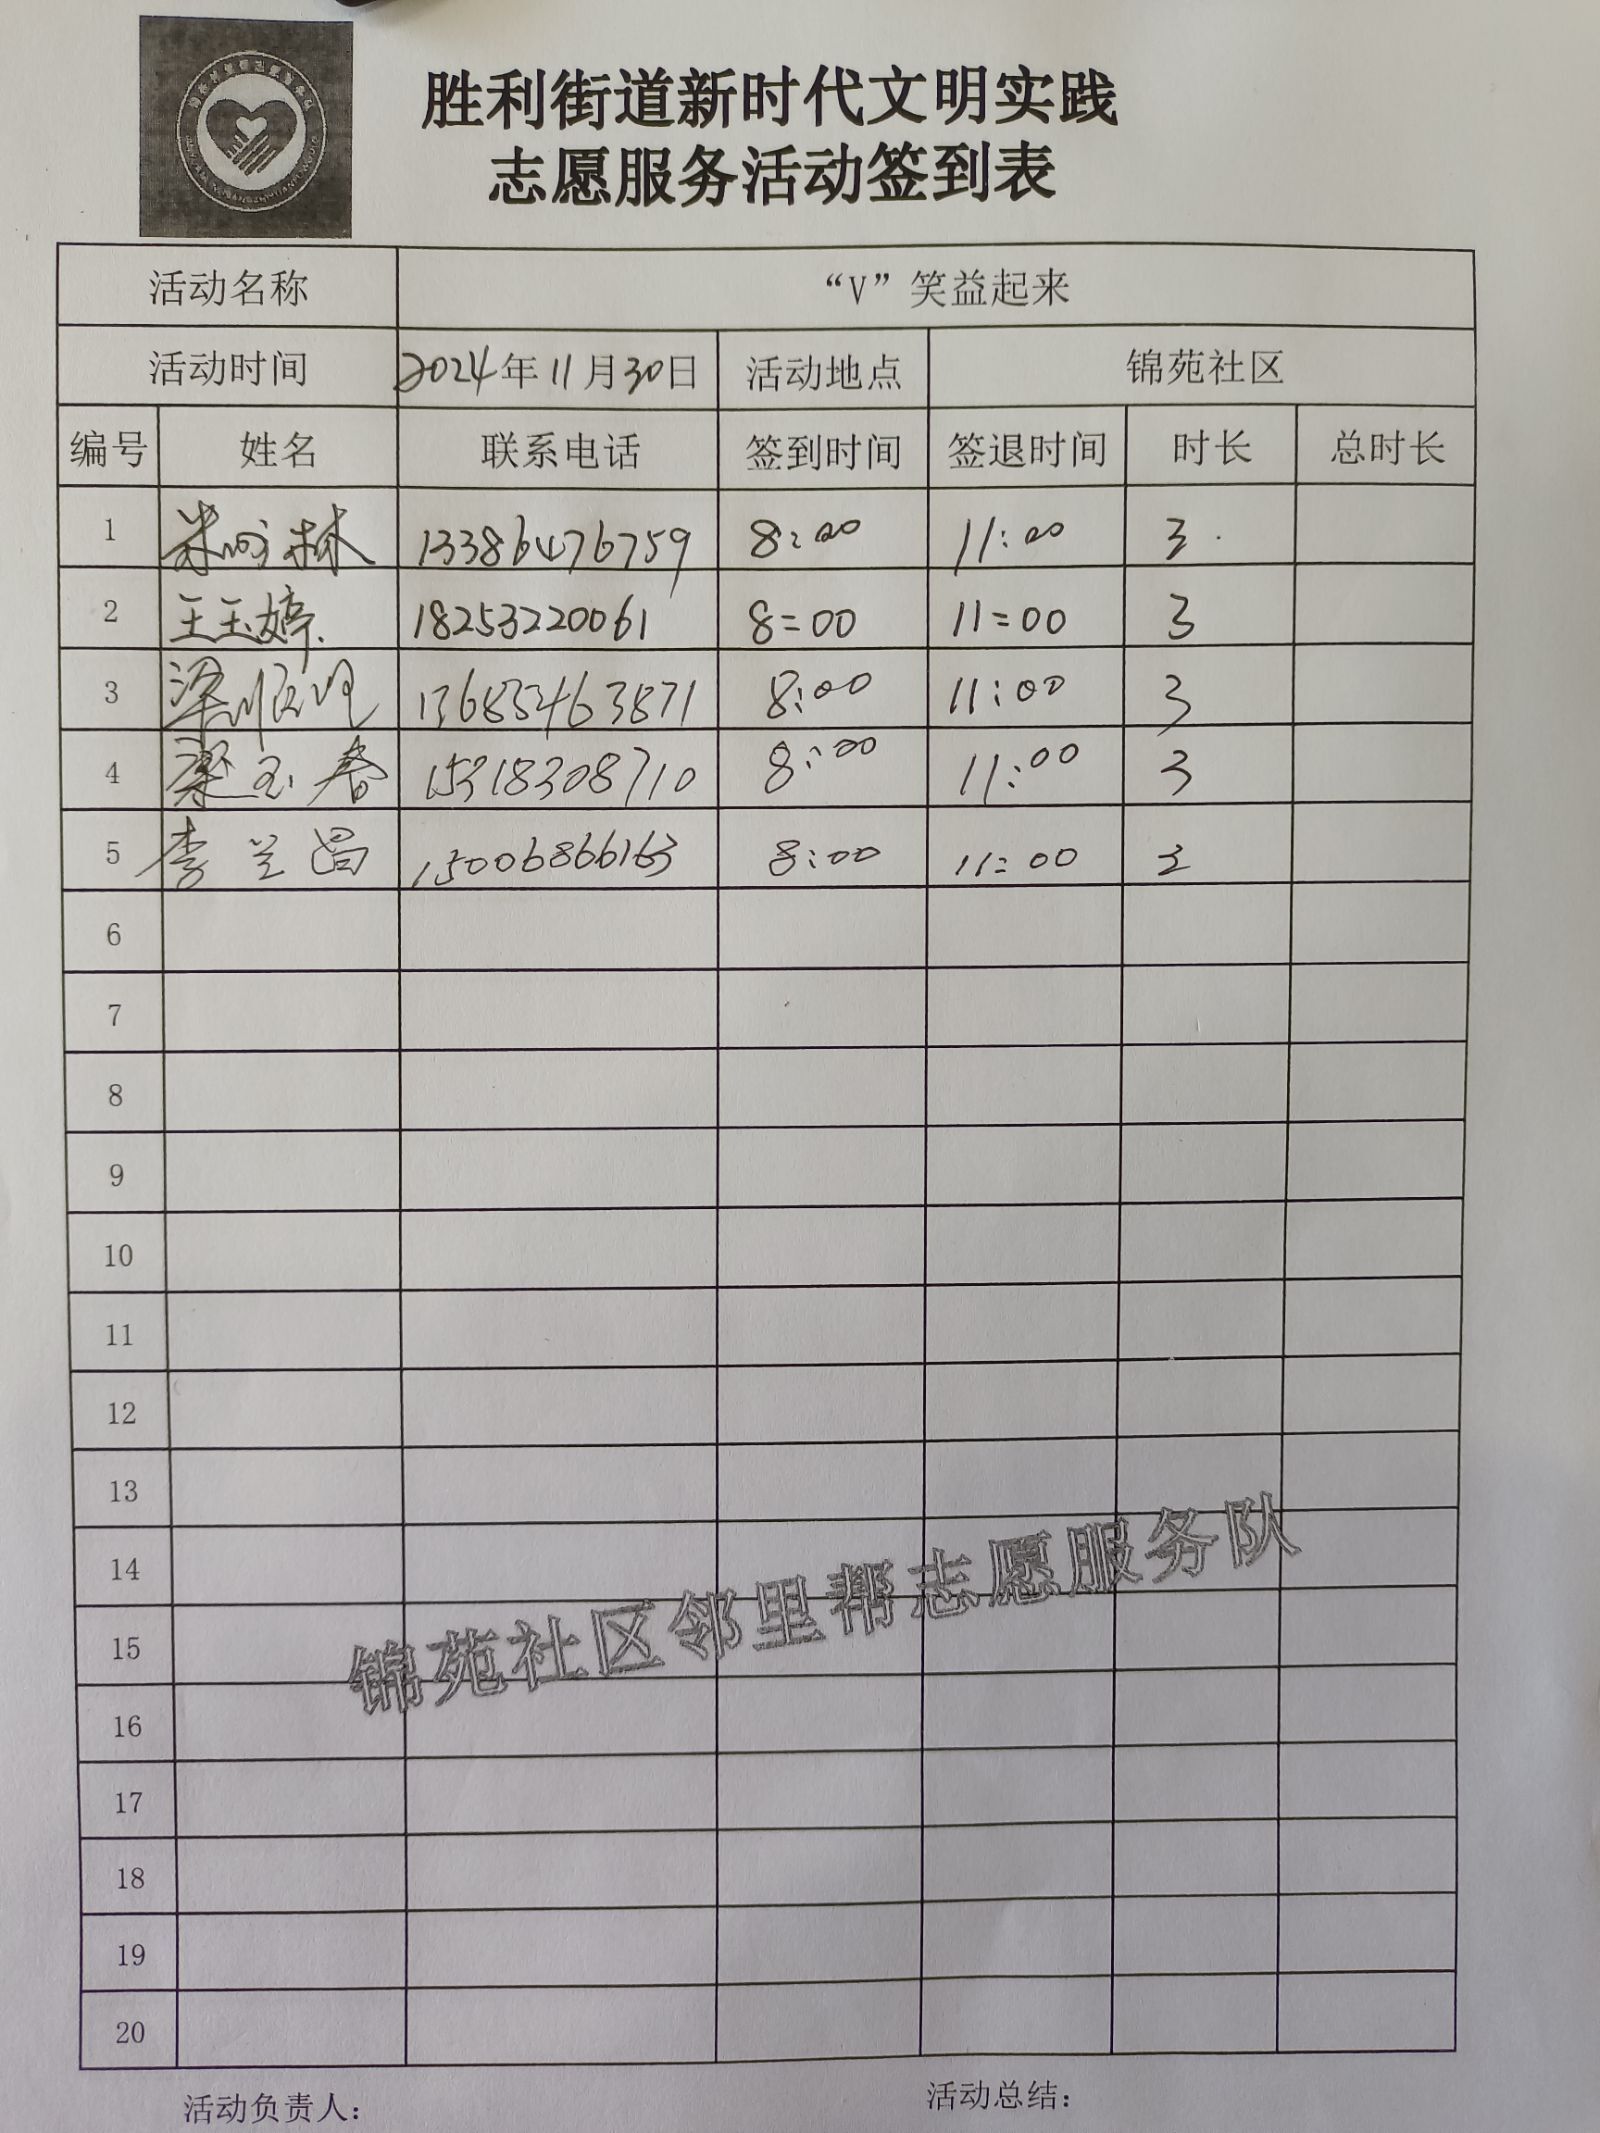 胜利街道新时代文明实践
志愿服务活动签到表
活动名称 “V”笑益起来
活动时间 2024年11月30日 活动地点 锦苑社区
编号 姓名 联系电话 签到时间 签退时间 时长 总时长
1 林 13386476759 8:00 11:00 3
2 王玉婷 18253220061 8:00 11:00 3
3 梁顺 13685463871 8:00 11:00 3
4 梁玉春 15318308710 8:00 11:00 3
5 李兰昌 15006866163 8:00 11:00 3
6
7
8
9
10
11
12
13
14
15
16
17
18
19
20
锦苑社区邻里帮志愿服务队
活动负责人: 活动总结: